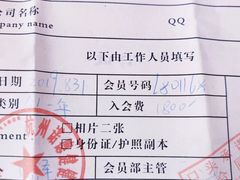 公司名称
pany name
QQ
以下由工作人员填写
日期 2017.8.31 会员号码
类别 一年 入会费 1800
ment: □相片二张
□身份证/护照副本
会员部主管
杭州